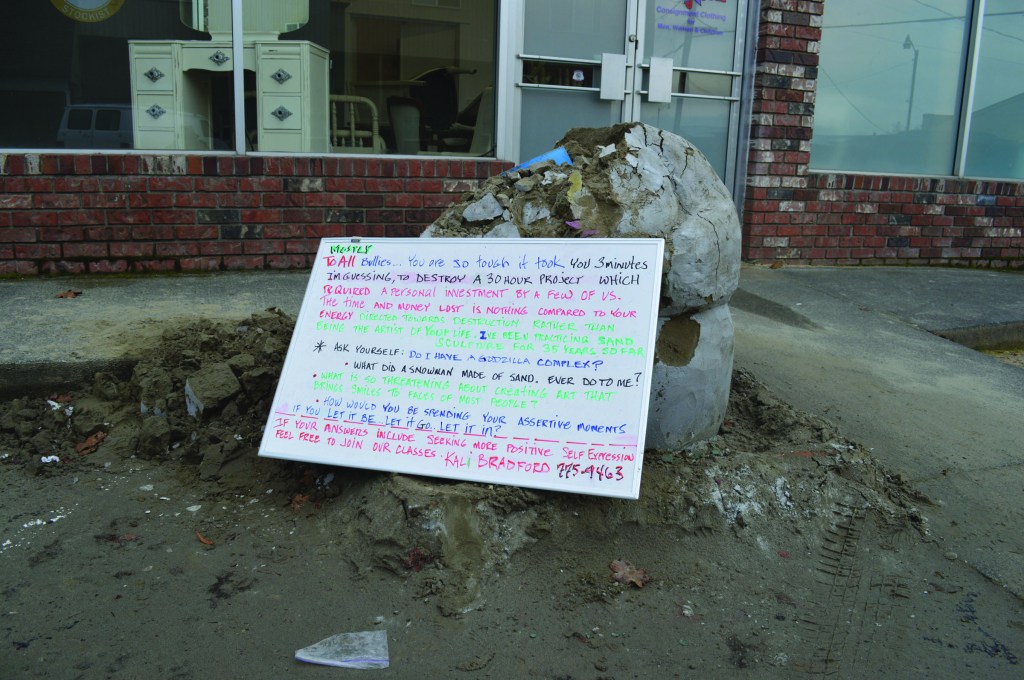 STOCKIST
Consignment Clothing
for
Men, Women & Children
MOSTLY
To All Bullies... You are so tough it took you 3 minutes
I'm guessing, to DESTROY A 30 HOUR PROJECT WHICH
REQUIRED A personal INVESTMENT BY A FEW OF US.
The time and money lost is nothing compared to your
ENERGY DIRECTED TOWARDS DESTRUCTION RATHER THAN
BEING THE ARTIST OF YOUR LIFE. I'VE BEEN PRACTICING SAND
SCULPTURE FOR 35 YEARS SO FAR
* ASK YOURSELF: DO I HAVE A GODZILLA COMPLEX?
• WHAT DID A SNOWMAN MADE OF SAND. EVER DO TO ME?
• WHAT IS SO THREATENING ABOUT CREATING ART THAT
BRINGS SMILES TO FACES OF MOST PEOPLE?
• HOW WOULD YOU BE SPENDING YOUR ASSERTIVE MOMENTS
IF YOU LET IT BE...LET iT GO..LET IT IN?
IF YOUR ANSWERS INCLUDE SEEKING MORE POSITIVE SELF EXPRESSION
FEEL FREE TO JOIN OUR CLASSES. KALi BRADFORD 775-9463